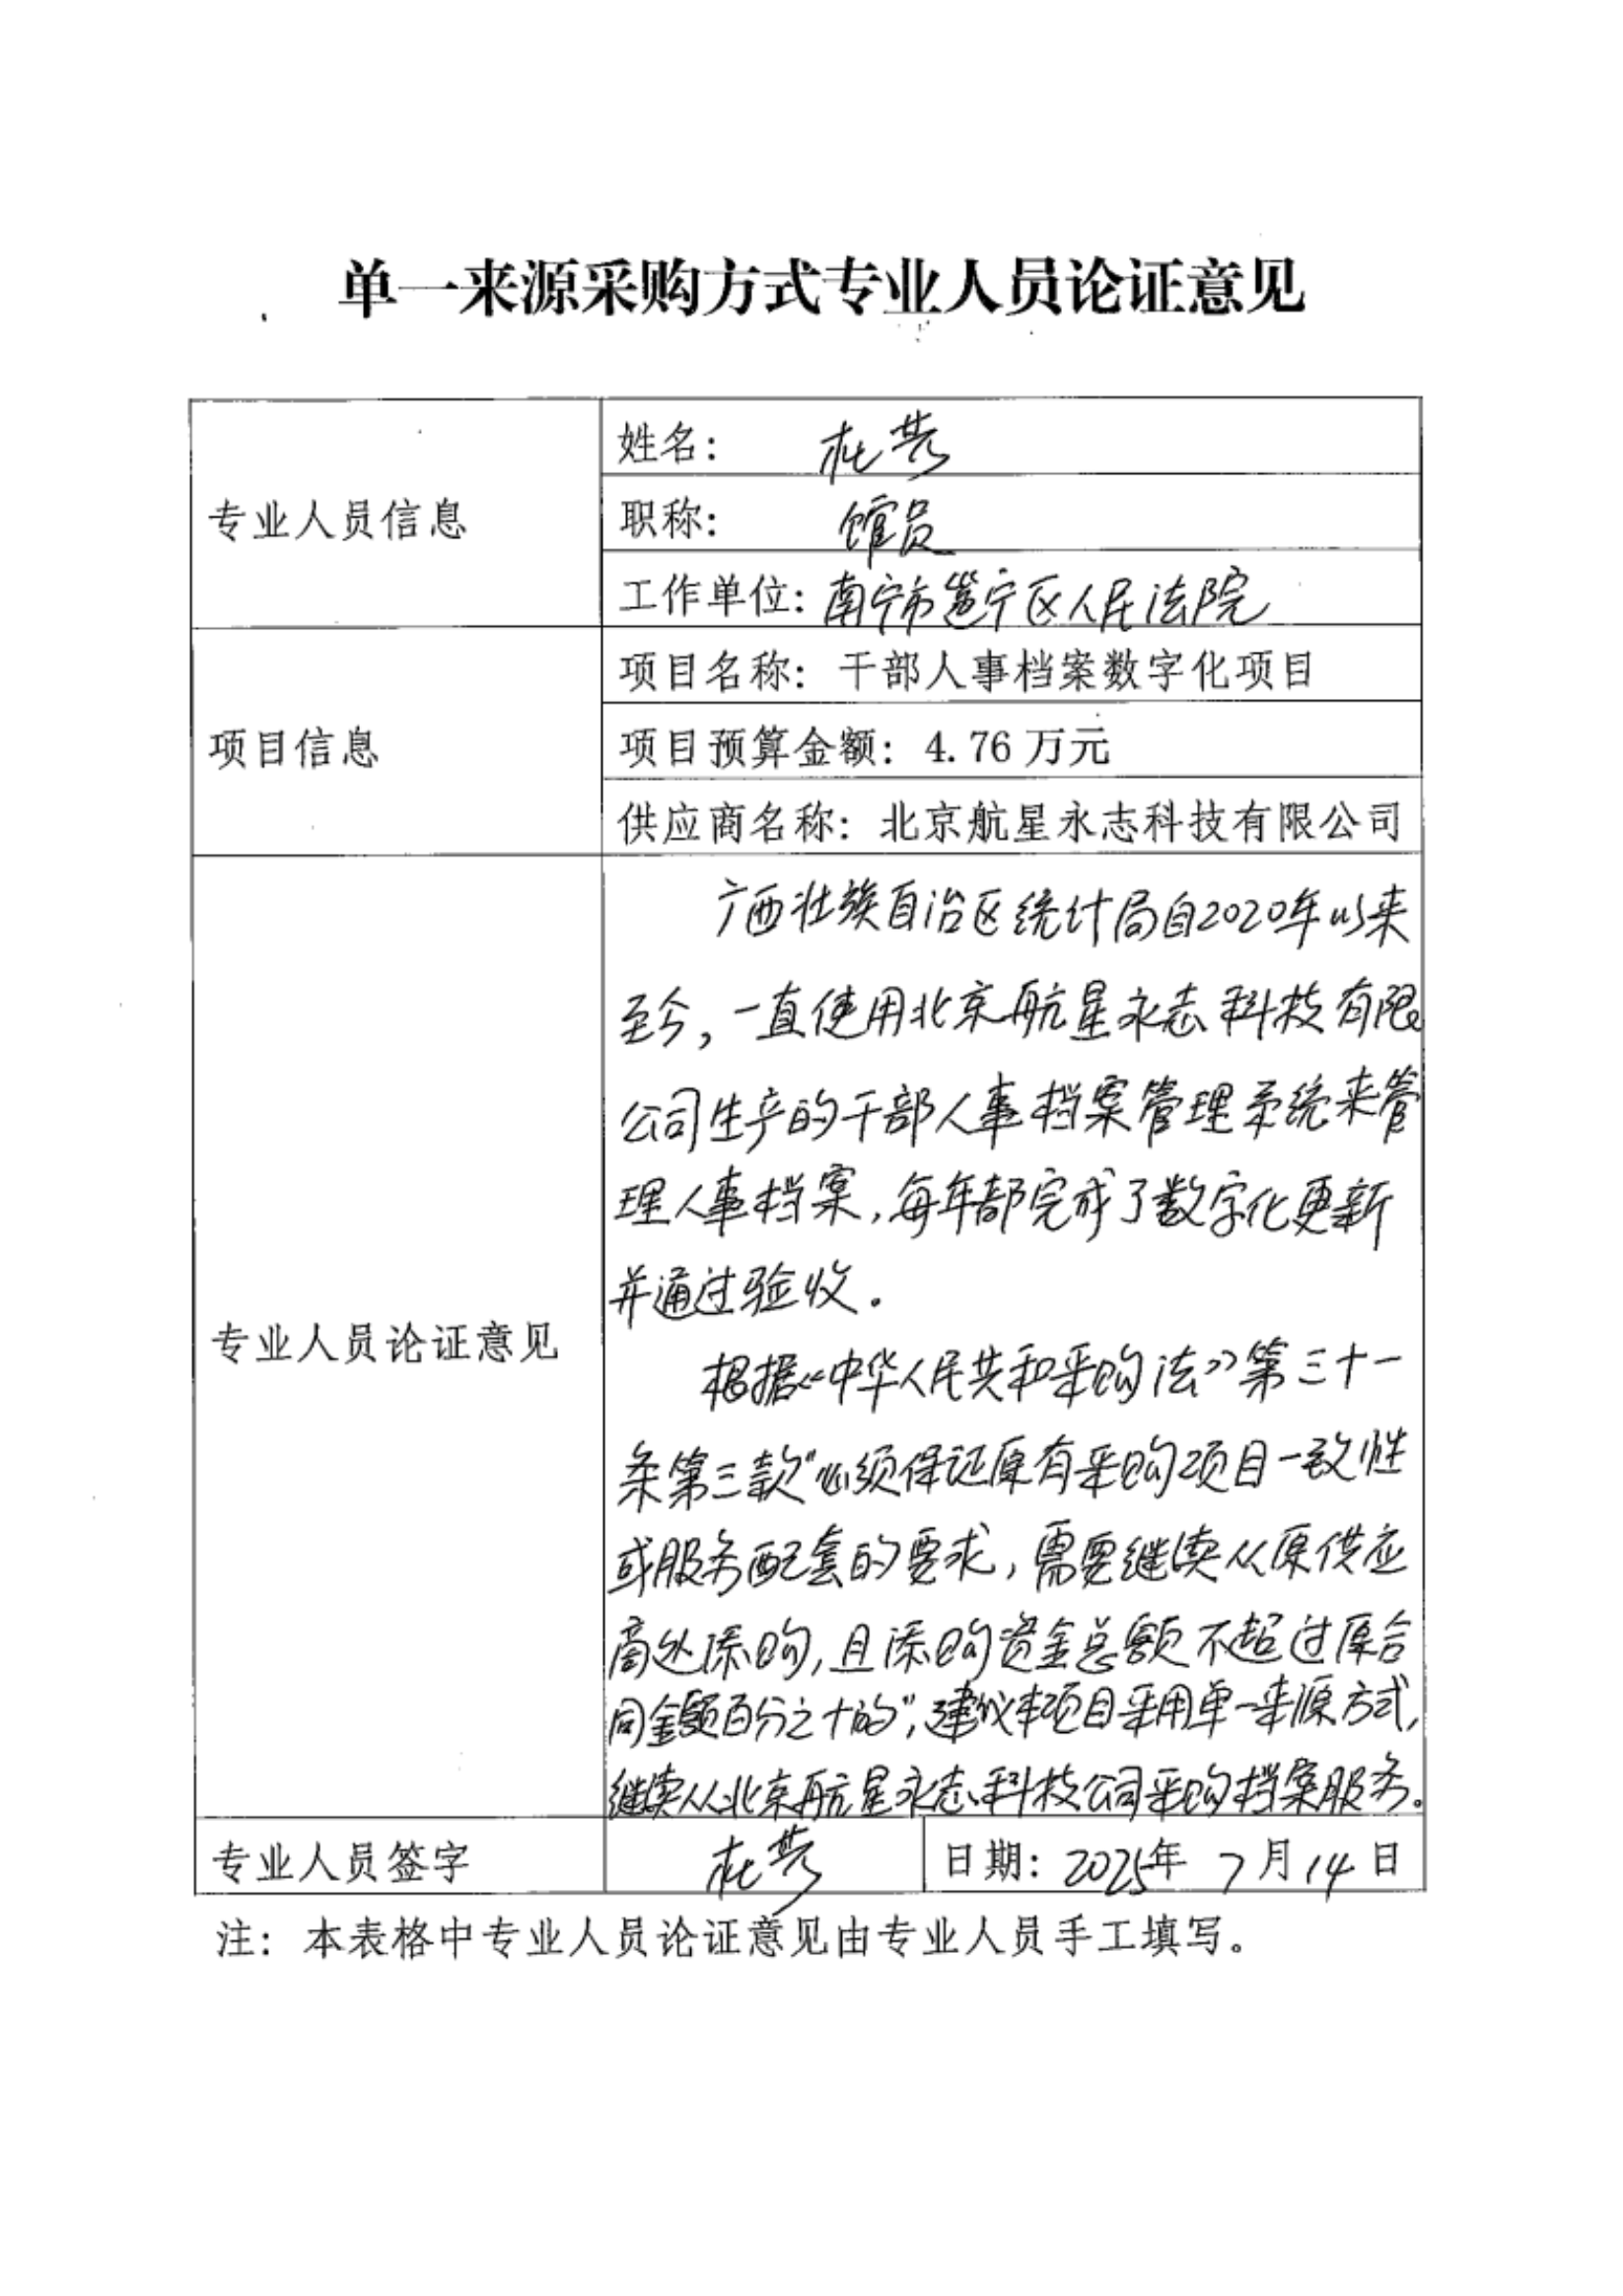 单一来源采购方式专业人员论证意见
专业人员信息
姓名：杜
职称：馆员
工作单位：南宁市邕宁区人民法院
项目信息
项目名称：干部人事档案数字化项目
项目预算金额：4.76万元
供应商名称：北京航星永志科技有限公司
专业人员论证意见
广西壮族自治区统计局自2020年以来
至今，一直使用北京航星永志科技有限
公司生产的干部人事档案管理系统来管
理人事档案，每年都完成了数字化更新
并通过验收。
根据《中华人民共和采购法》第三十一
条第三款“必须保证原有采购项目一致性
或服务配套的要求，需要继续从原供应
商处添购，且添购资金总额不超过原合
同金额百分之十的”，建议本项目采用单一来源方式，
继续从北京航星永志科技公司采购档案服务。
专业人员签字
杜
日期：2025年7月14日
注：本表格中专业人员论证意见由专业人员手工填写。